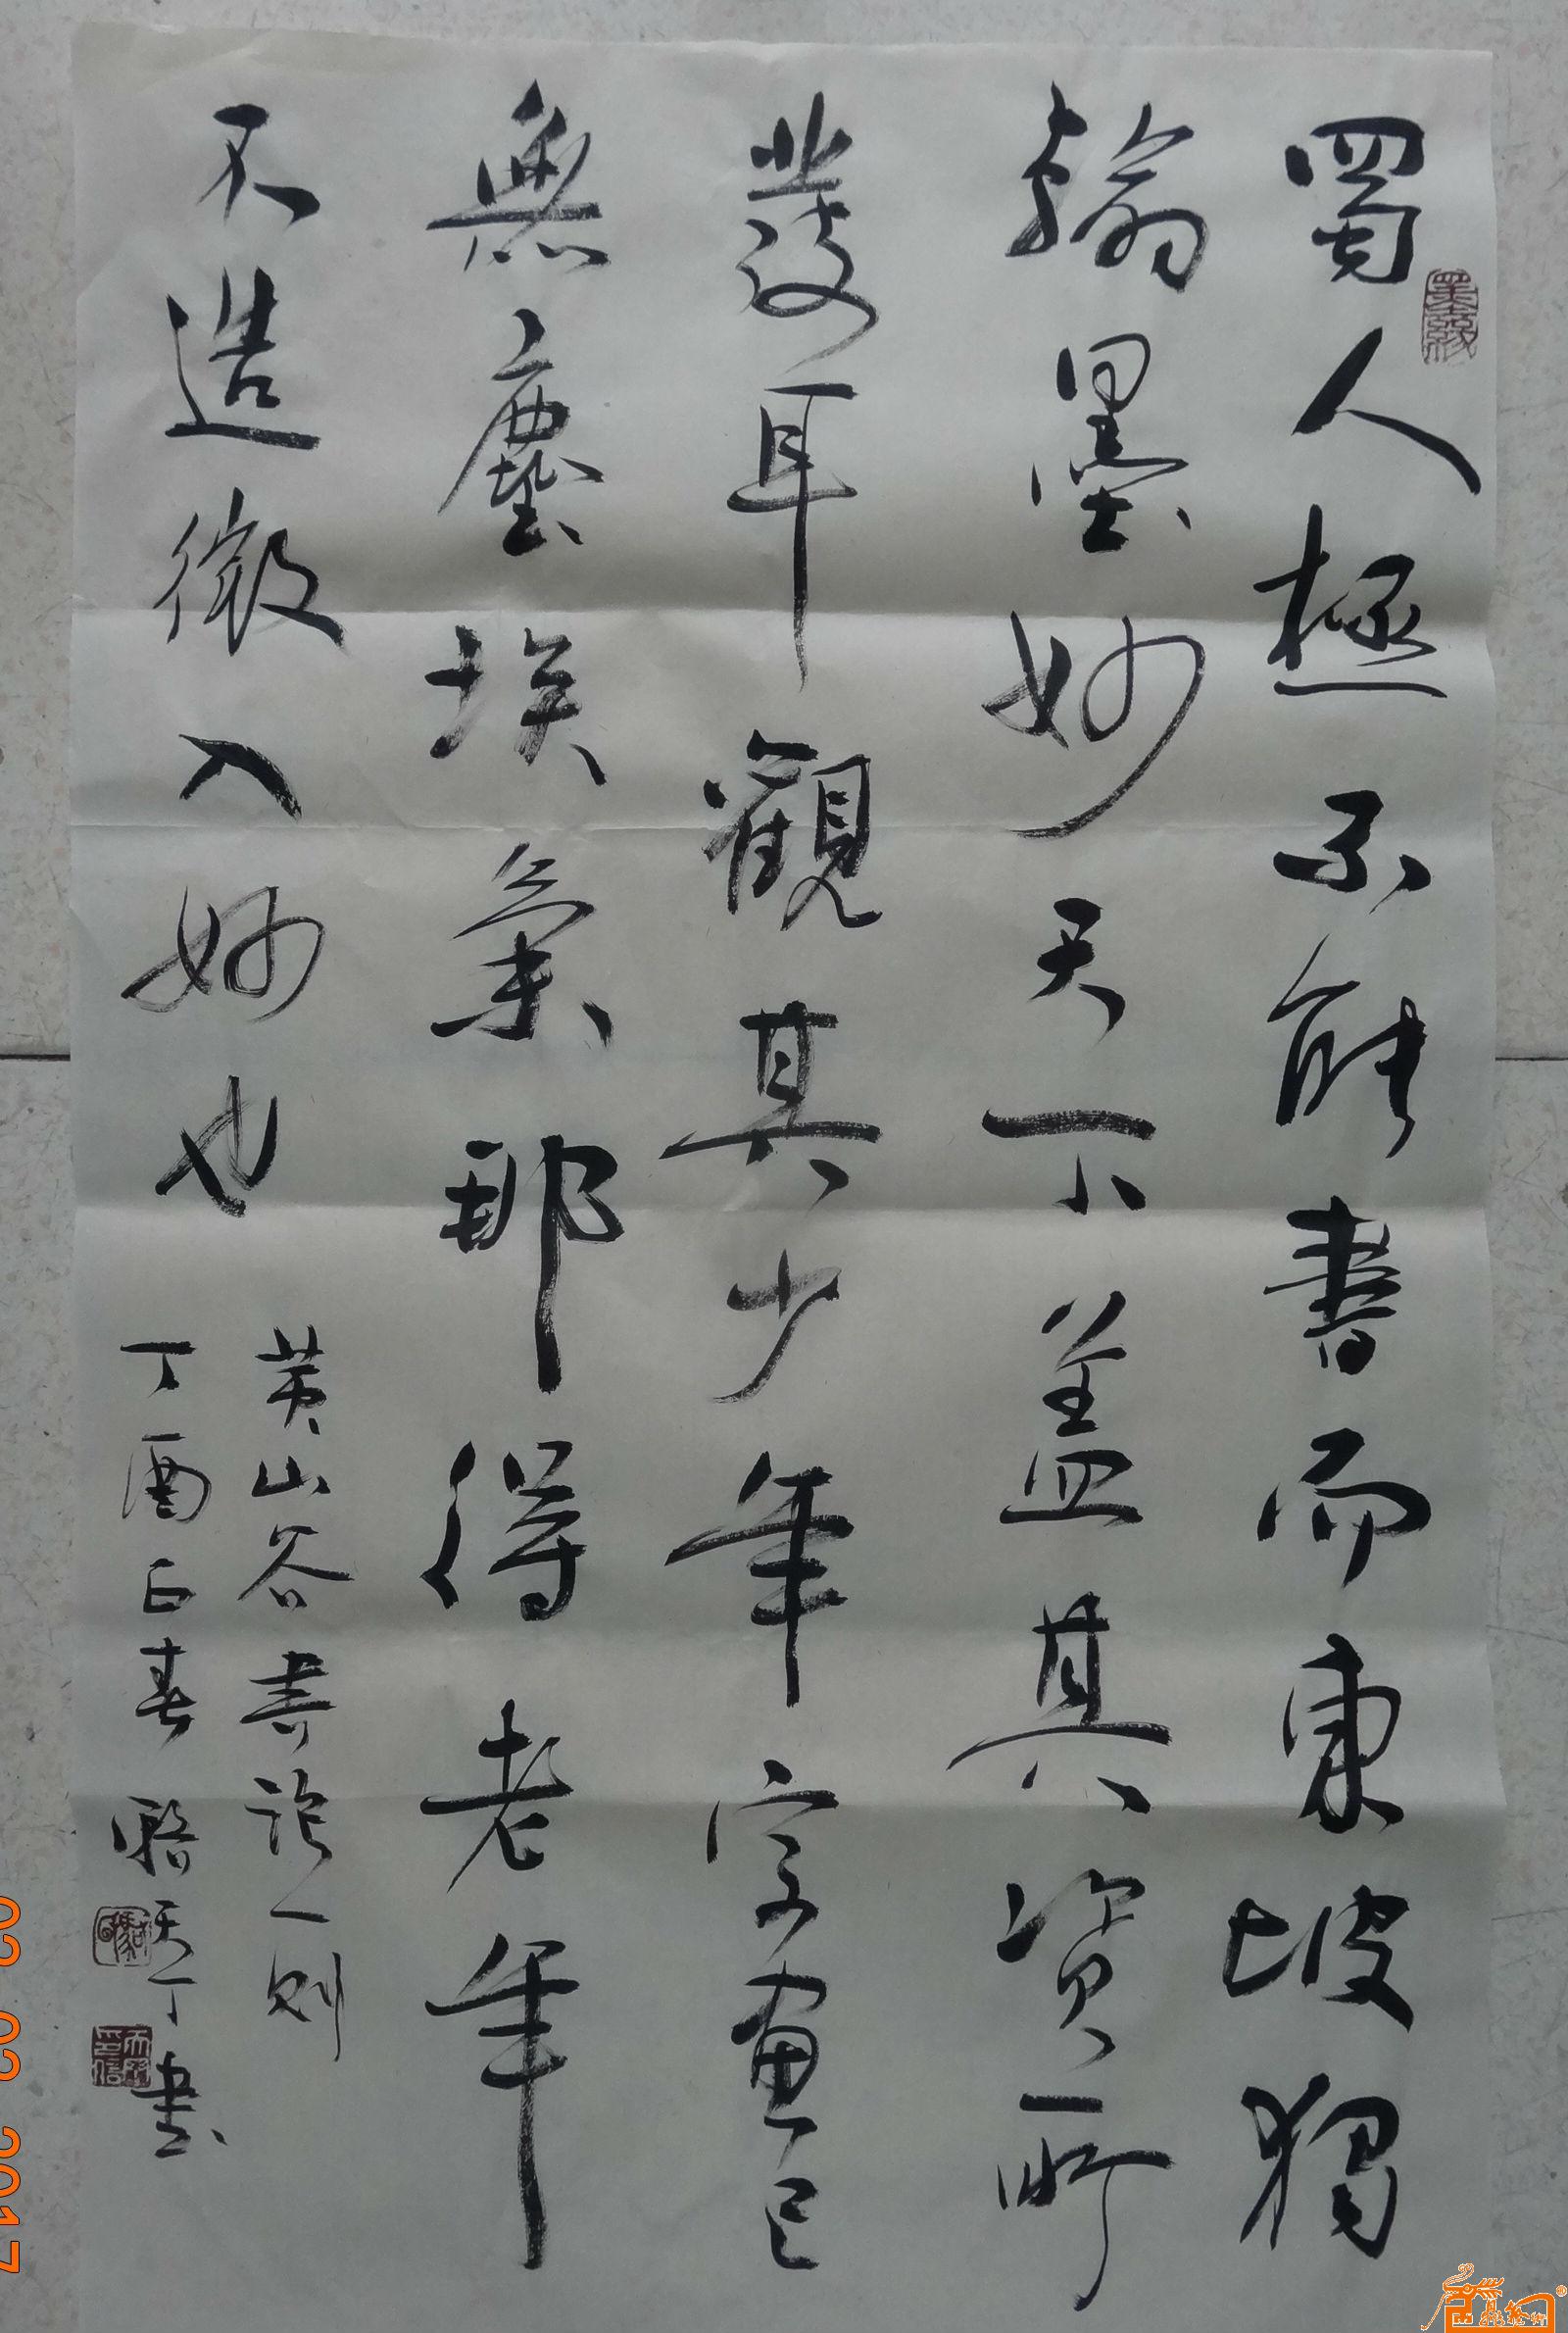 蜀人極不能書而東坡獨
翰墨妙天下蓋其資所
發耳觀其少年字畫已
無塵埃氣那得老年
不造微入妙也
黃山谷書論一則
丁酉正春 天丁書
墨緣
02 02 2017